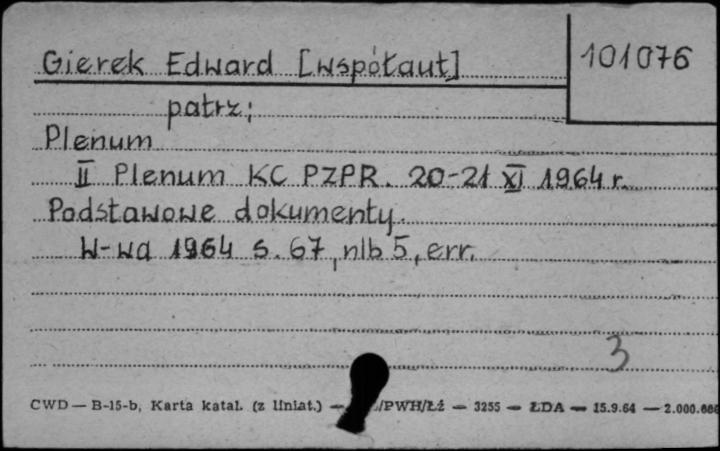 Gierek Edward [współaut]
101076
patrz;
Plenum
II Plenum KC PZPR. 20-21 XI 1964 r.
Podstawowe dokumenty.
W-wa 1964 s. 67, nlb 5, err.
3
CWD — B-15-b, Karta katal. (z liniat.) — /PWH/Łź — 3255 — ŁDA — 15.9.64 — 2.000.000